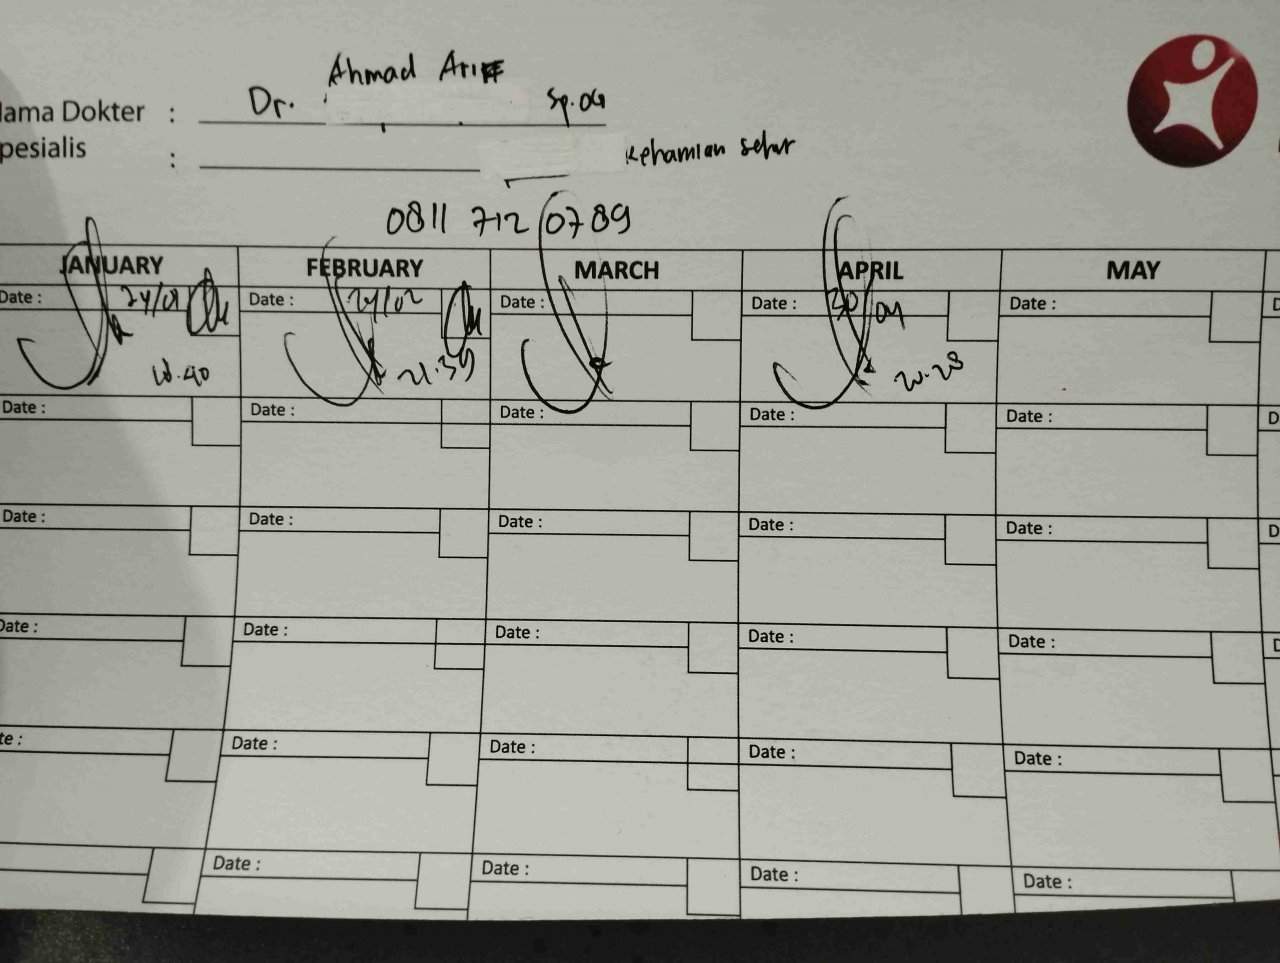 Ahmad Ariff
lama Dokter : Dr. Sp.OG
pesialis : Kehamilan
0811 712 0789
JANUARY FEBRUARY MARCH APRIL MAY
Date : 24/01 Date : 24/02 Date : Date : 30/04 Date : D
21.39 20.28
Date : Date : Date : Date : Date : D
Date : Date : Date : Date : Date : D
Date : Date : Date : Date : Date : D
te : Date : Date : Date : Date :
Date : Date : Date : Date :